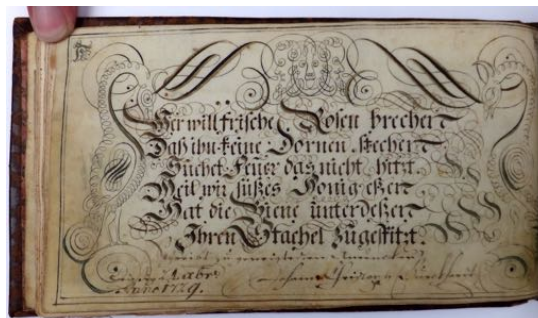 Wer will frische Rosen brechen
Daß ihn keine Dornen stechen
Suchet Feuer das nicht hitzt.
Weil wir süßes Honig eßen
Hat die Biene unterdeßen
Ihren Stachel zugespitzt.
Anno 1729.